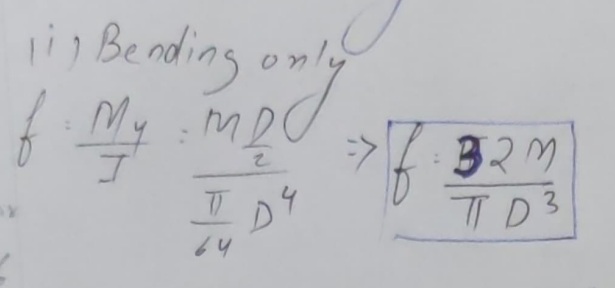 ii) Bending only
f = My/I = M D/2 / π/64 D⁴ => f = 32M/πD³